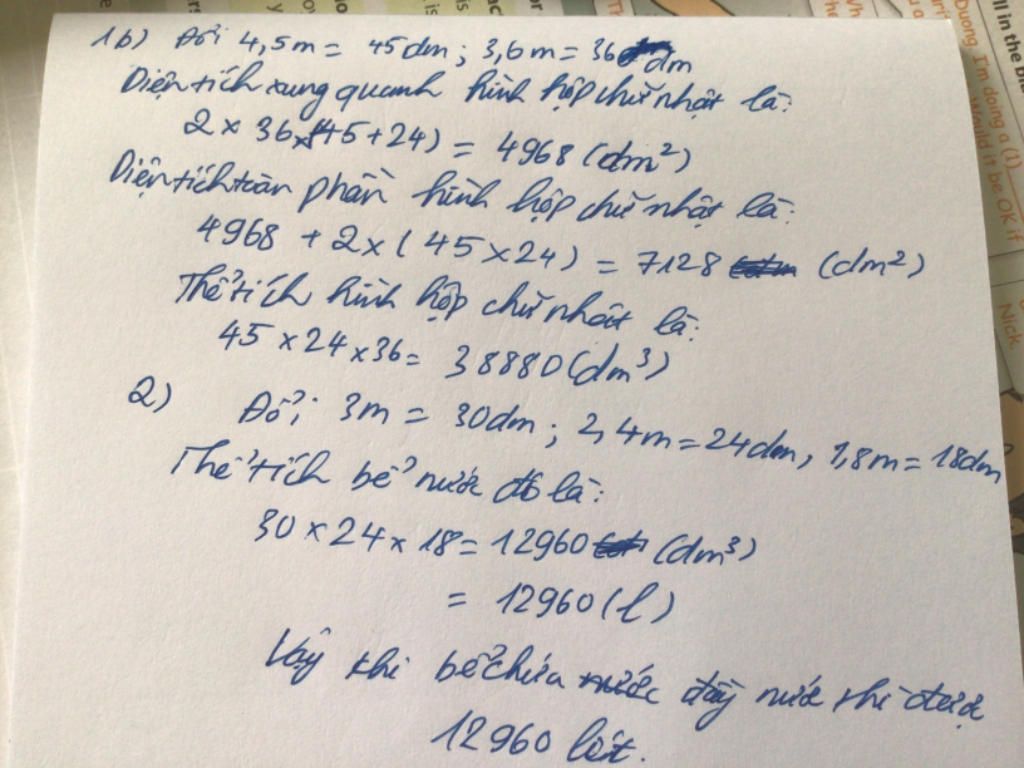 1b) Đổi 4,5m = 45dm; 3,6m = 36dm
Diện tích xung quanh hình hộp chữ nhật là:
2 x 36 x (45 + 24) = 4968 (dm²)
Diện tích toàn phần hình hộp chữ nhật là:
4968 + 2 x (45 x 24) = 7128 (dm²)
Thể tích hình hộp chữ nhật là:
45 x 24 x 36 = 38880 (dm³)
2) Đổi 3m = 30dm; 2,4m = 24dm, 1,8m = 18dm
Thể tích bể nước đó là:
30 x 24 x 18 = 12960 (dm³)
= 12960 (l)
Vậy khi bể chứa nước đầy nước thì được
12960 lít.
ll in the bla
Duong, I'm doing a (1)
Would it be OK if
Nick